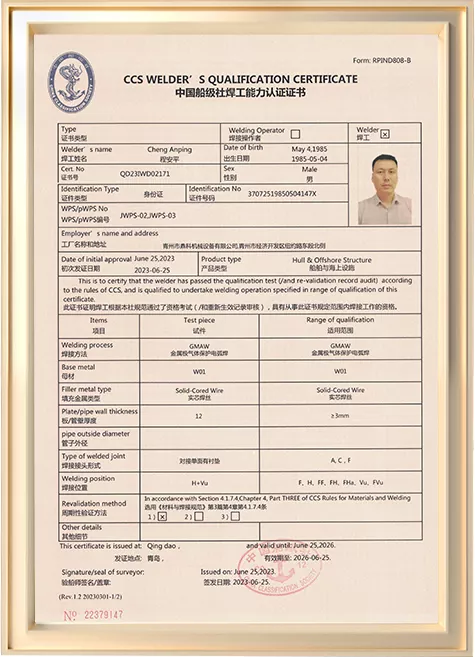 Form: RPIND808-B
CCS WELDER'S QUALIFICATION CERTIFICATE
中国船级社焊工能力认证证书
Type
证书类型
Welding Operator
焊接操作者
Welder
焊工
Welder's name
焊工姓名
Cheng Anping
程安平
Date of birth
出生日期
May 4,1985
1985-05-04
Cert. No
证书号
QD23IWD02171
Sex
性别
Male
男
Identification Type
证件类型
身份证
Identification No
证件号码
37072519850504147X
WPS/pWPS No
WPS/pWPS编号
JWPS-02,JWPS-03
Employer's name and address
工厂名称和地址
青州市鼎科机械设备有限公司,青州市经济开发区纽约路东段北侧
Date of initial approval
初次发证日期
June 25,2023
2023-06-25
Product type
产品类型
Hull & Offshore Structure
船舶与海上设施
This is to certify that the welder has passed the qualification test (/and re-validation record audit) according
to the rules of CCS, and is qualified to undertake welding operation specified in range of qualification of this
certificate.
此证书证明焊工根据本社规范通过了资格考试（/和重新生效记录审核），具有从事此证书规范范围内焊接工作的资格。
Items
项目
Test piece
试件
Range of qualification
适用范围
Welding process
焊接方法
GMAW
金属极气体保护电弧焊
GMAW
金属极气体保护电弧焊
Base metal
母材
W01
W01
Filler metal type
填充金属类型
Solid-Cored Wire
实芯焊丝
Solid-Cored Wire
实芯焊丝
Plate/pipe wall thickness
板/管壁厚度
12
≥3mm
pipe outside diameter
管子外径
Type of welded joint
焊接接头形式
对接单面有衬垫
A, C, F
Welding position
焊接位置
H+Vu
F, H, FF, FH, FHa, Vu, FVu
Revalidation method
周期性验证方法
In accordance with Section 4.1.7.4,Chapter 4, Part THREE of CCS Rules for Materials and Welding
选用《材料与焊接规范》第3篇第4章第4.1.7.4条
1) 2) 3)
Other details
其他细节
This certificate is issued at: Qing dao,
发证地点: 青岛,
and valid until: June 25,2026.
有效期至: 2026-06-25.
Signature/seal of surveyor:
验船师签名/盖章:
Issued on: June 25,2023.
签发日期: 2023-06-25.
(Rev.1.2 20230301-1/2)
№ 22379147